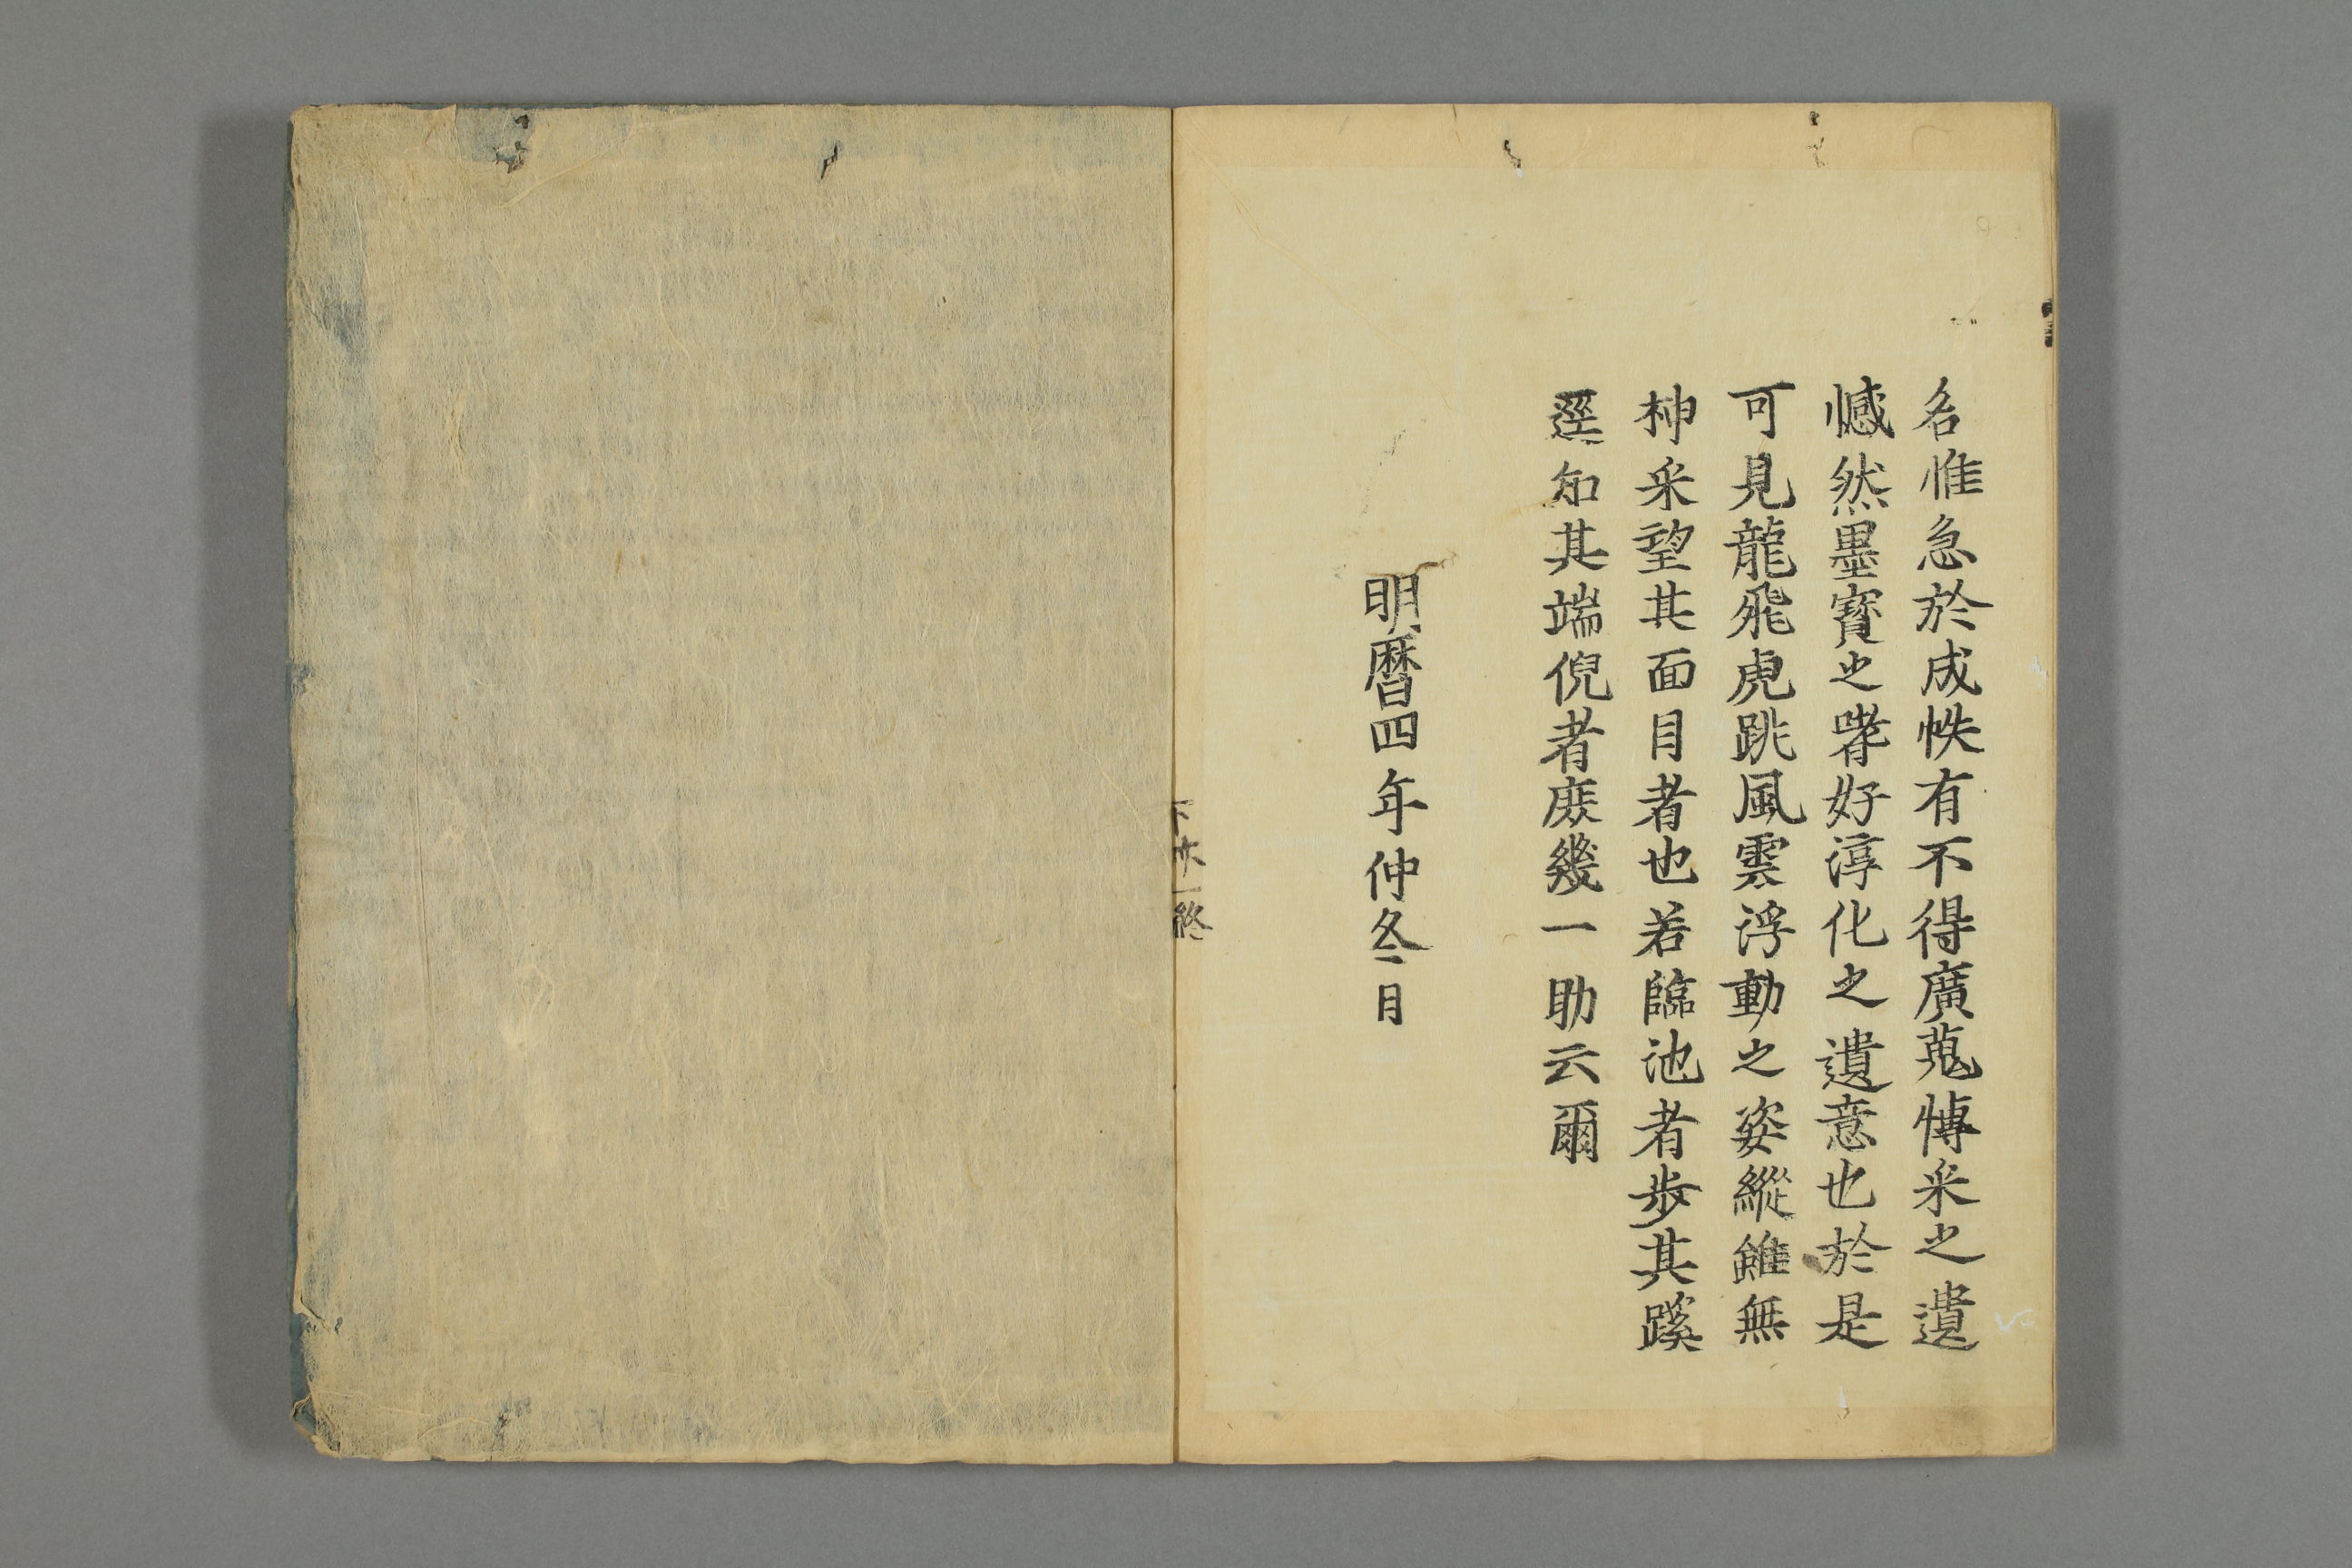 名惟急於成帙有不得廣蒐博采之遺
憾然墨寶之嗜好淳化之遺意也於是
可見龍飛虎跳風雲浮動之姿縱雖無
神采望其面目者也若臨池者步其蹊
逕知其端倪者庶幾一助云爾
明暦四年仲冬月